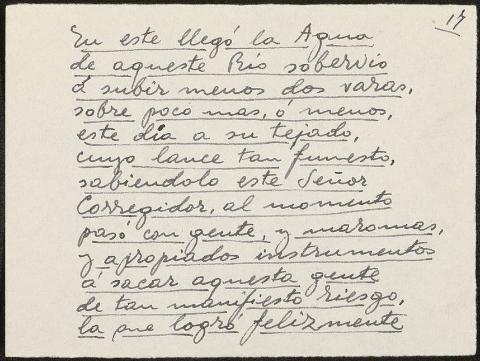 17
En este llegó la Agua
de aqueste Rio sobervio
á subir menos dos varas,
sobre poco mas, ó menos,
este día a su tejado,
cuyo lance tan funesto,
sabiendolo este Señor
Corregidor, al momento
pasó con gente, y maromas,
y apropiados instrumentos
á sacar aquesta gente
de tan manifiesto riesgo,
la que logró felizmente